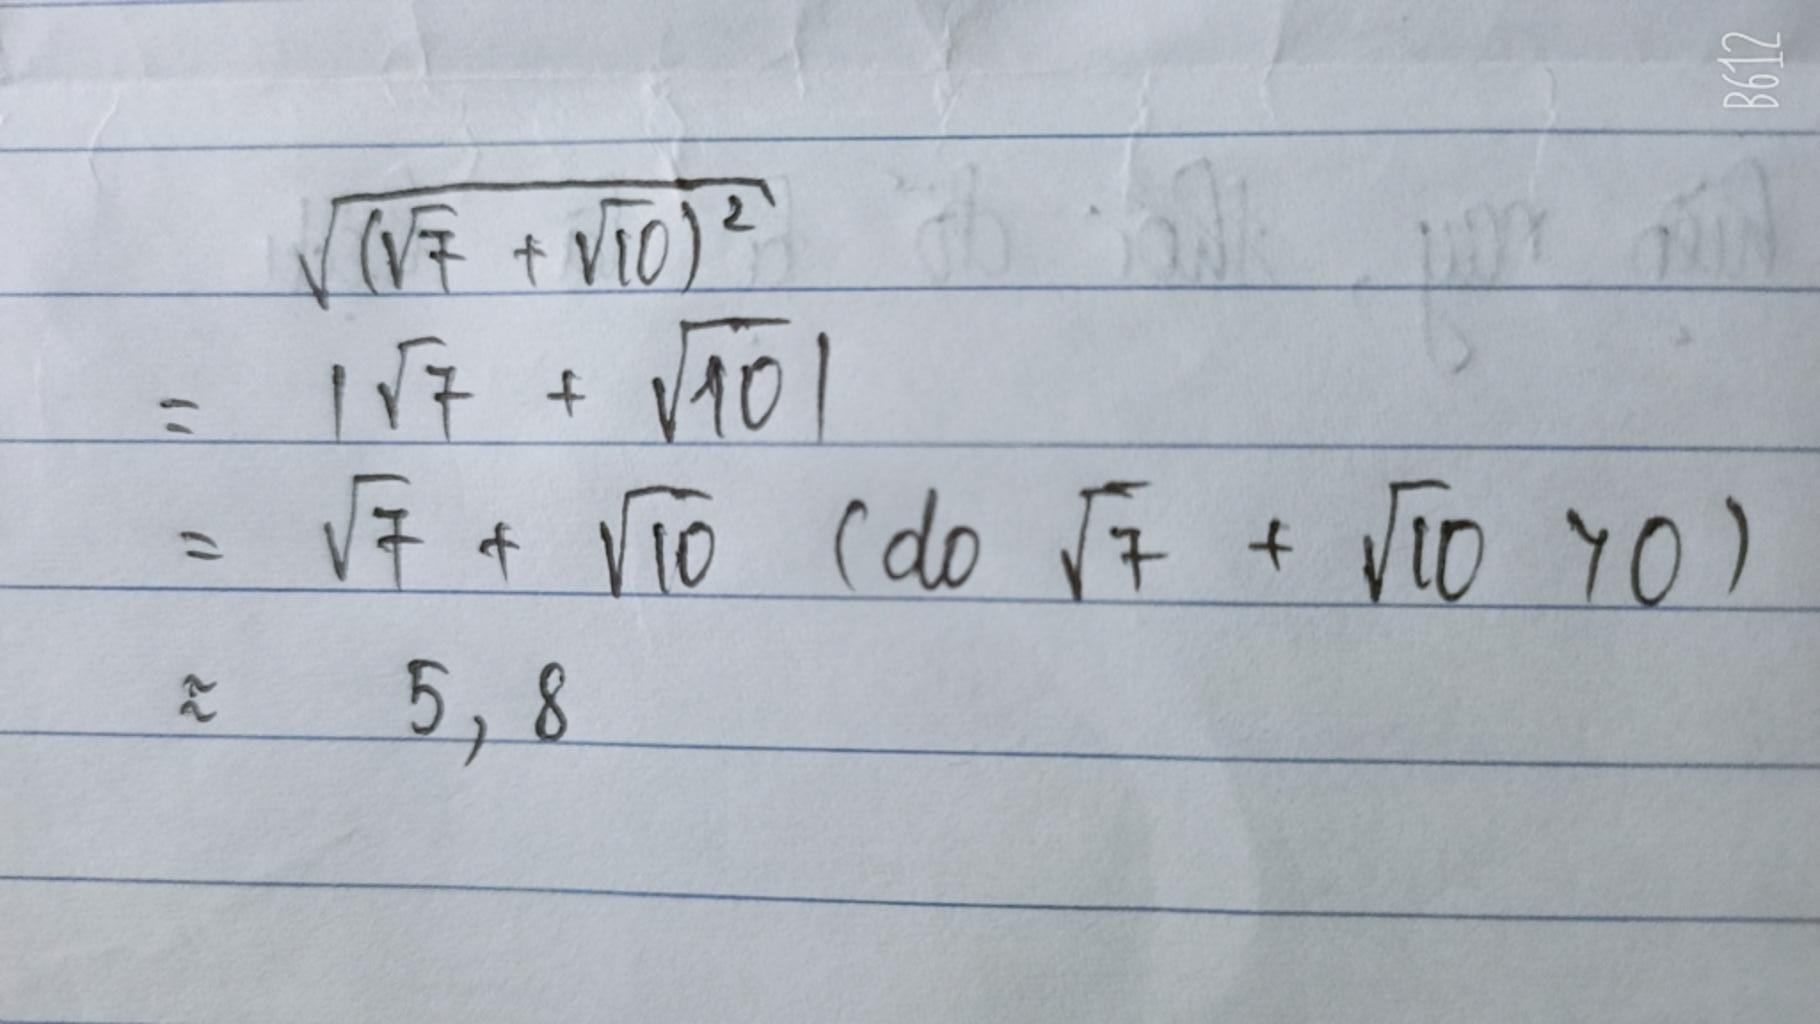 B612
√((√7 + √10)²)
= |√7 + √10|
= √7 + √10 (do √7 + √10 > 0)
≈ 5,8